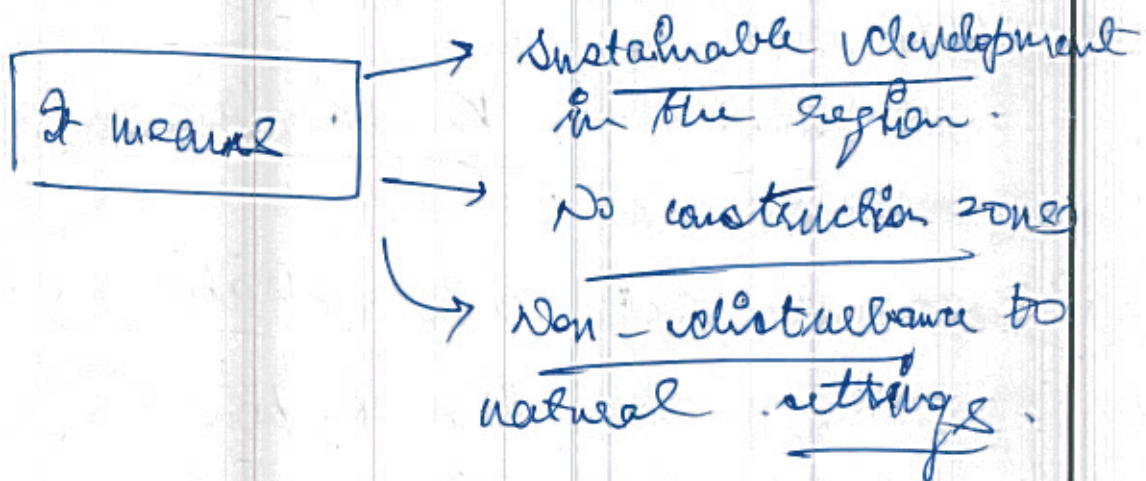 It means
Sustainable development
in the region.
No construction zones
Non-disturbance to
natural settings.